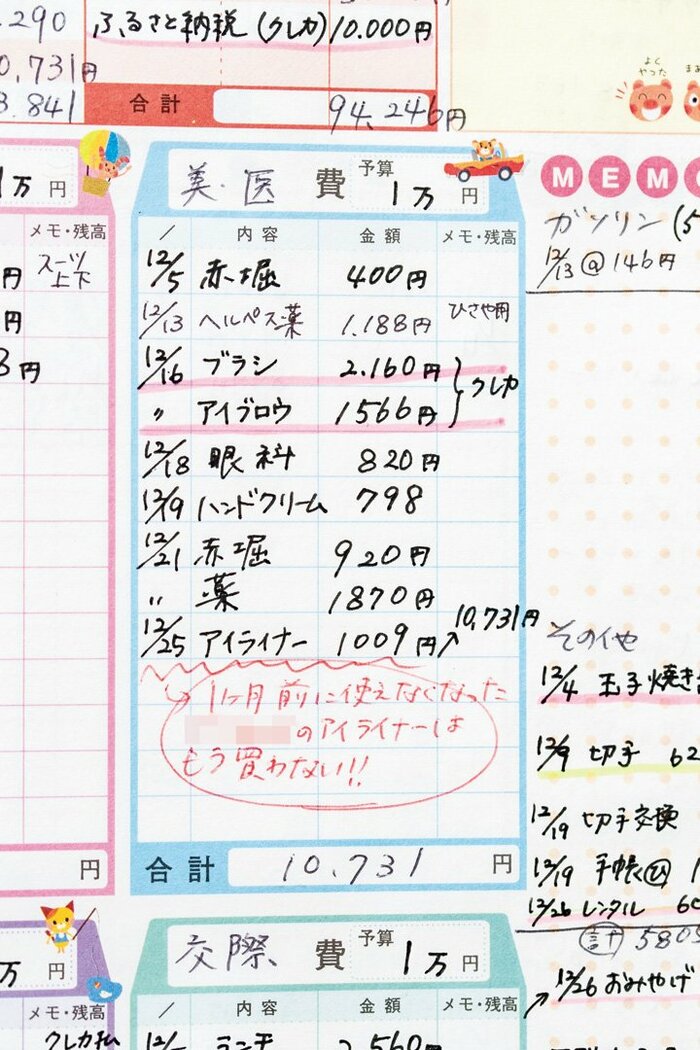 .290
ふるさと納税(クレカ) 10.000円
0,731円
3.841
合計 94,246円
よくやった
万 円
美・医 費 予算 1万 円
MEMO
メモ・残高
/ 内容 金額 メモ・残高
ガソリン(5
12/13 @146円
円 スーツ上下
12/5 赤堀 400円
12/13 ヘルペス薬 1.188円 ひさや用
円
12/16 ブラシ 2.160円
3円
〃 アイブロウ 1566円 クレカ
12/18 眼科 820円
12/19 ハンドクリーム 798
12/21 赤堀 920円
〃 薬 1870円
12/25 アイライナー 1009円 10,731円
その他
1ヶ月前に使えなくなった
のアイライナーは
もう買わない!!
12/4 玉子焼き
12/9 切手 62
12/19 切手交換
12/19 手帳
12/26 レンタル
計 580
12/26 おみやげ
円
合計 10.731 円
万 円
交際 費 予算 1万 円
メモ・残高
/ 内容 金額 メモ・残高
クレカ払
ランチ 2.560円